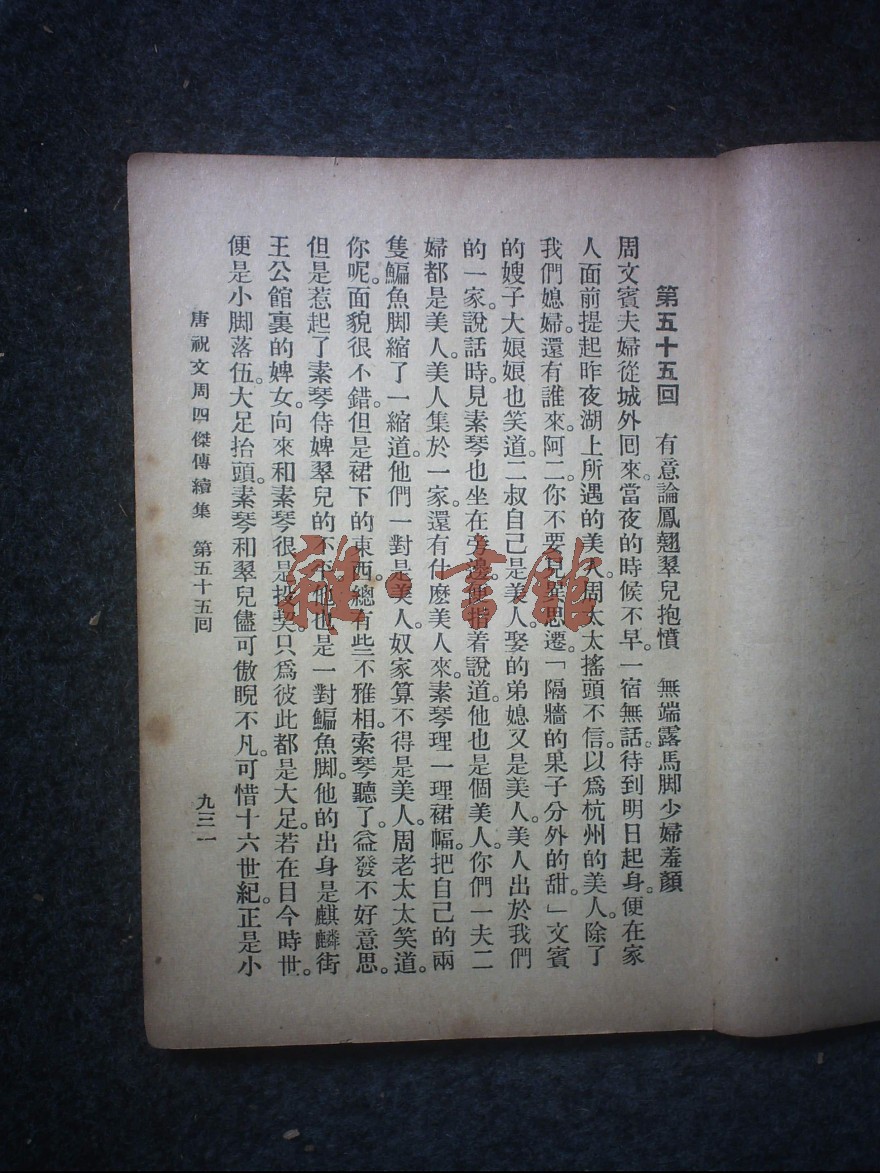 第五十五回　有意論鳳翹翠兒抱憤　無端露馬脚少婦羞顏
周文賓夫婦從城外囘來。當夜的時候不早。一宿無話。待到明日起身。便在家
人面前提起昨夜湖上所遇的美人。周太太搖頭不信。以爲杭州的美人。除了
我們媳婦。還有誰來。阿二。你不要見異思遷。「隔牆的果子分外的甜。」文賓
的嫂子大娘娘也笑道。二叔自己是美人娶的弟媳又是美人。美人出於我們
的一家。說話時。見素琴也坐在旁邊。便指着說道。他也是個美人。你們一夫二
婦都是美人。美人集於一家。還有什麽美人來。素琴理一理裙幅。把自己的兩
隻鯿魚脚縮了一縮道。他們一對是美人。奴家算不得是美人。周老太太笑道。
你呢。面貌很不錯。但是裙下的東西。總有些不雅相。素琴聽了。益發不好意思。
但是惹起了素琴侍婢翠兒的不平。他也是一對鯿魚脚。他的出身是麒麟街
王公館裏的婢女。向來和素琴很是投契。只爲彼此都是大足。若在目今時世。
便是小脚落伍。大足抬頭。素琴和翠兒儘可傲睨不凡。可惜十六世紀。正是小
唐祝文周四傑傳續集　第五十五囘　九三一
雜·書館